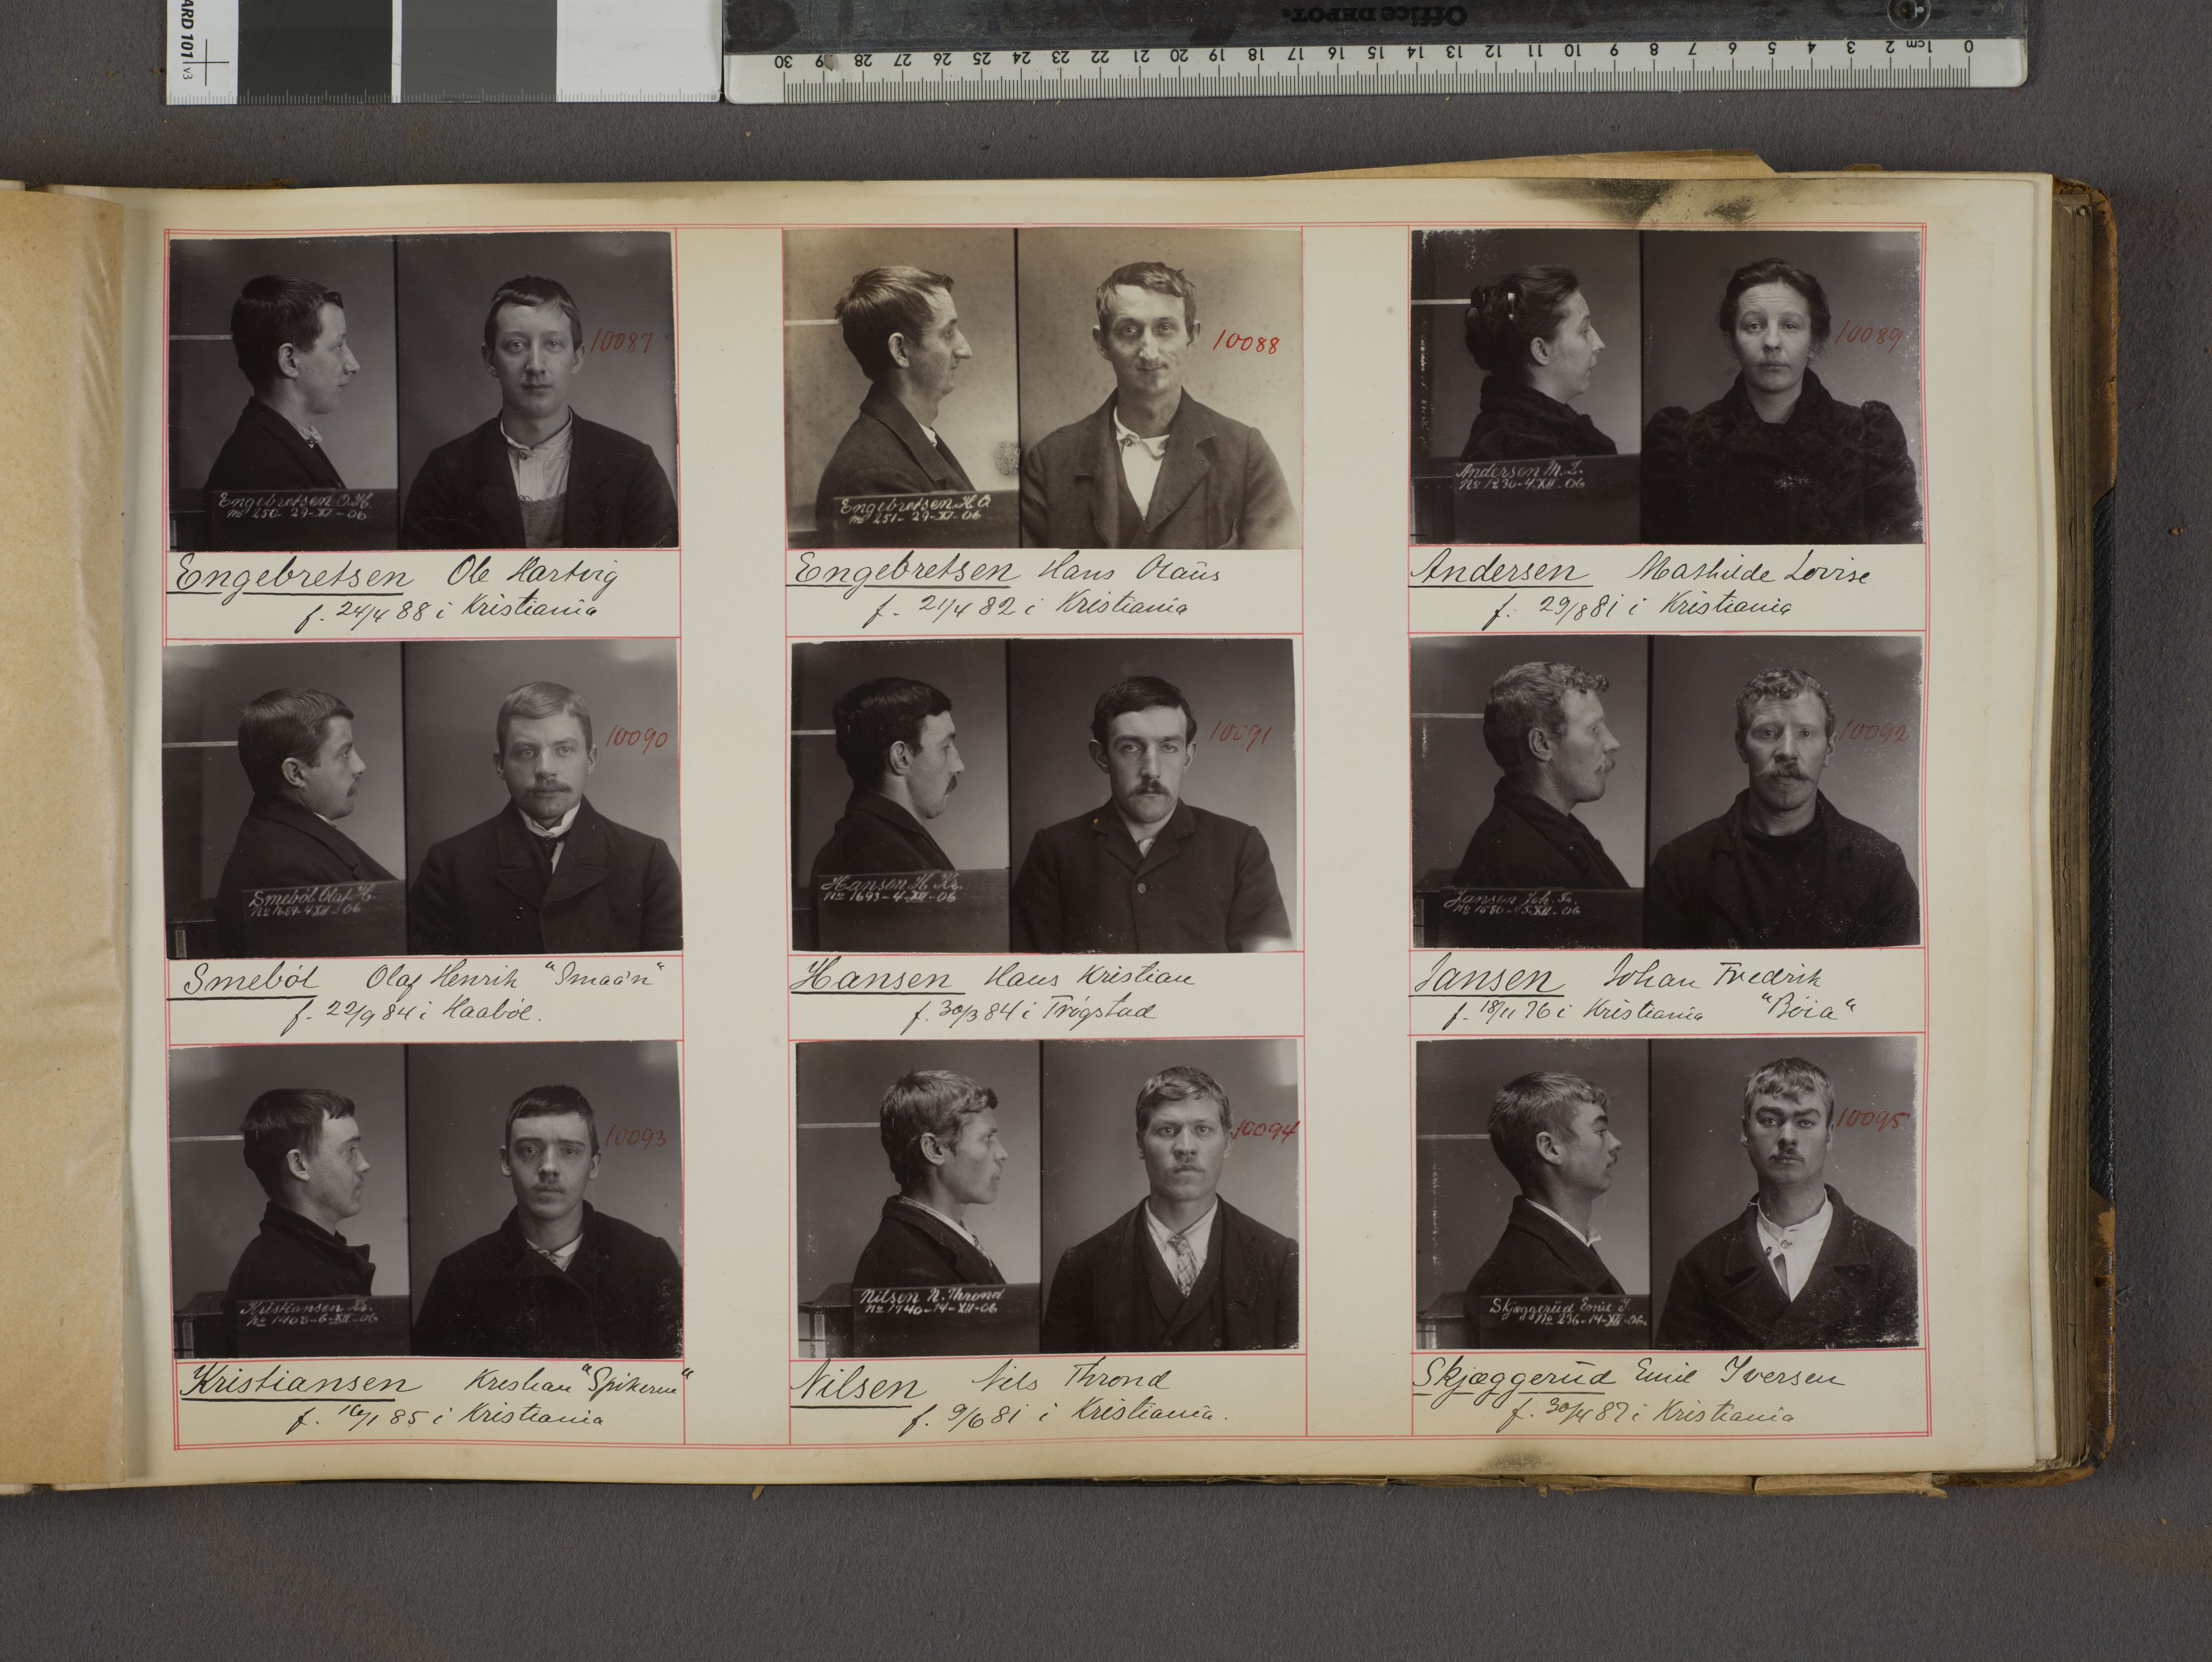 ARD 101 v3
Office DEPOT.
30 29 28 27 26 25 24 23 22 21 20 19 18 17 16 15 14 13 12 11 10 9 8 7 6 5 4 3 2 1cm 0
10087
Engebretsen O. H.
No 250- 29-XI-06
Engebretsen Ole Hartvig
f. 24/4 88 i Kristiania
10088
Engebretsen H. O
No 251- 29-XI-06
Engebretsen Hans Olaus
f. 21/4 82 i Kristiania
10089
Andersen M. L.
No 1230-4-XII-06
Andersen Mathilde Lovise
f: 29/8 81 i Kristiania
10090
Smeböl Olaf H.
No 1689-4-XII-06
Smeböl Olaf Henrik "Smaa'n"
f. 22/9 84 i Haaböl.
10091
Hansen H. Kr.
No 1693-4-XII-06
Hansen Hans Kristian
f. 30/3 84 i Trögstad
10092
Jansen Joh. Fr.
No 1580-5-XII-06
Jansen Johan Fredrik
f. 18/11 76 i Kristiania "Böia"
10093
Kristiansen Kr.
No 1408-6-XII-06
Kristiansen Kristian "Spikeren"
f. 16/1 85 i Kristiania
10094
Nilsen N. Thrond
No 1740-14-XII-06
Nilsen Nils Thrond
f. 9/6 81 i Kristiania.
10095
Skjæggerud Emil I.
No 236-14-XII-06
Skjæggerud Emil Iversen
f. 30/4 87 i Kristiania